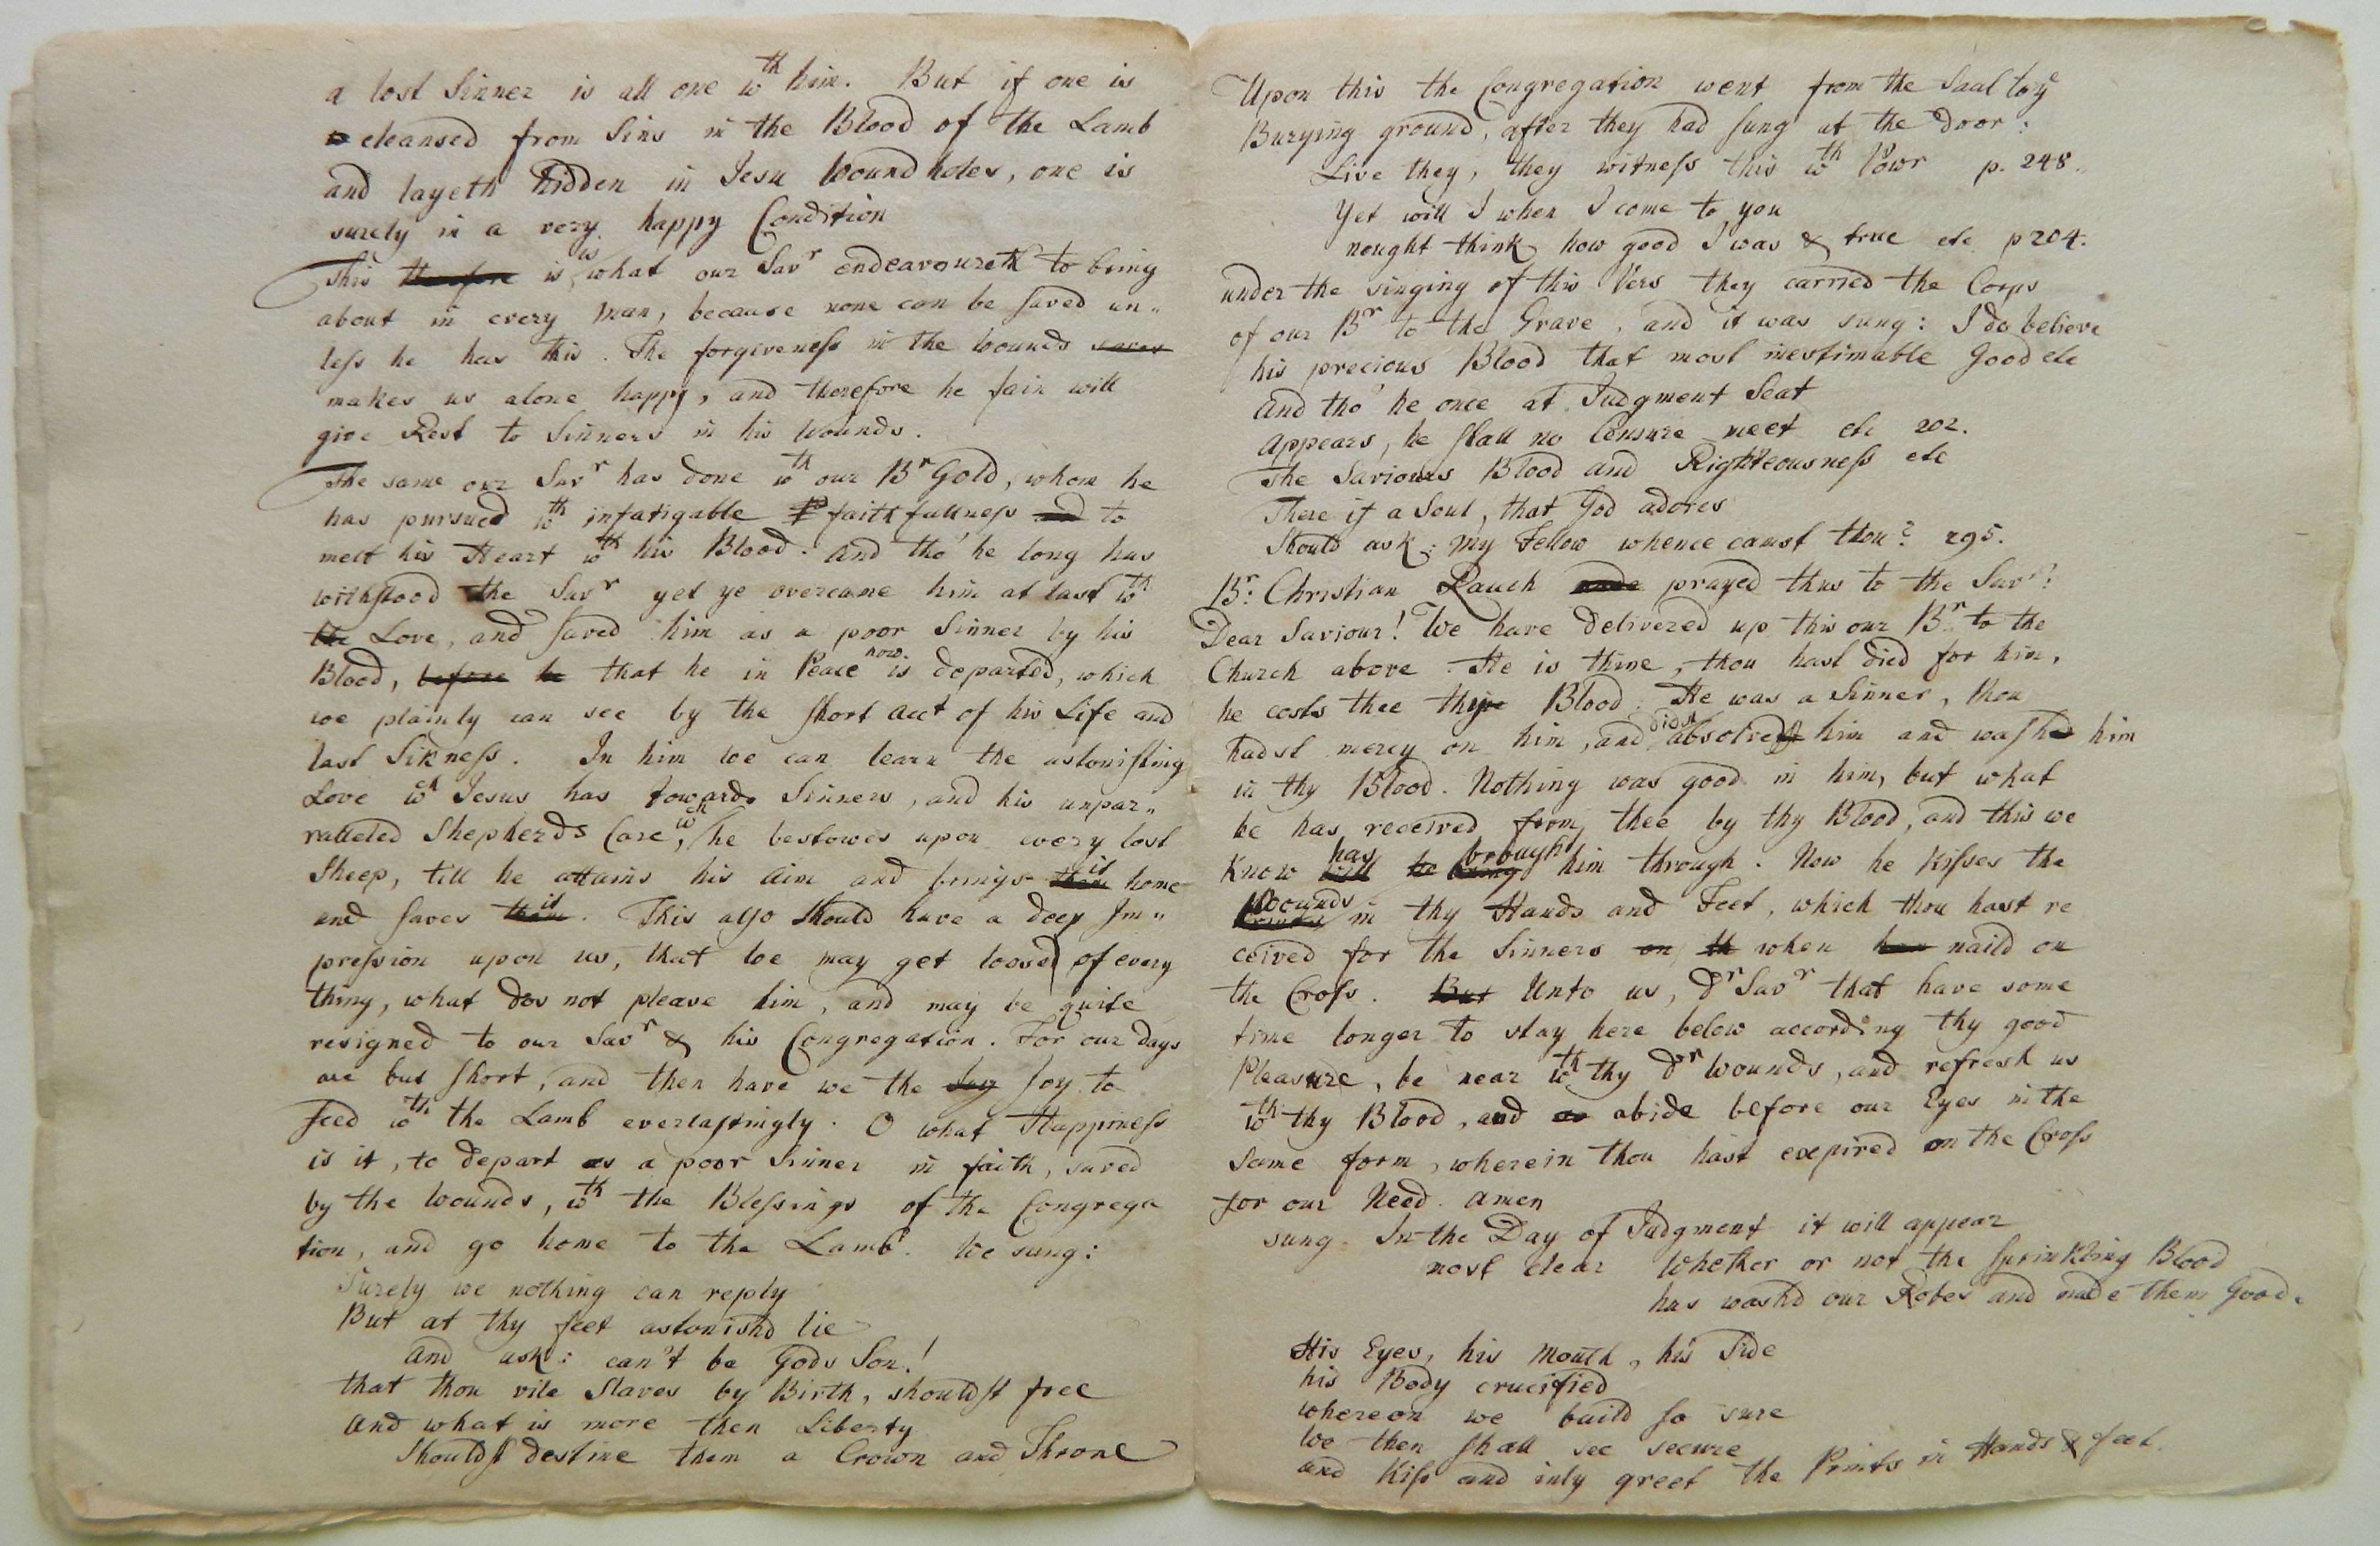 a lost Sinner is all one wth him. But if one is
cleansed from Sins in the Blood of the Lamb
and layeth hidden in Jesu Woundholes, one is
surely in a very happy Condition
This therefore is is what our Savr endeavoureth to bring
about in every Man, because none can be saved un„
less he has this. The forgiveness in the Wounds saves
makes us alone happy, and therefore he fain will
give Rest to Sinners in his Wounds.
The same our Savr has done wth our Br Gold, whom he
has pursued wth infatigable faithfullness and to
melt his Heart wth his Blood. And tho' he long has
withstood the Savr yet ye overcame him at last wth
the Love, and saved him as a poor Sinner by his
Blood, before he that he in Peace now is departed, which
we plainly can see by the short acct of his Life and
last Sikness. In him we can learn the astonishing
Love wch Jesus has towards Sinners, and his unpar„
ralleled Shepherds Care, wch he bestowes upon every lost
Sheep, till he attains his Aim and brings them it home
and saves them it. This also should have a deep Im„
pression upon us, that we may get loosed of every
thing, what dos not please him, and may be quite
resigned to our Savr & his Congregation. For our days
are but short, and then have we the Joy Joy to
feed wth the Lamb everlastingly. O what Happiness
is it, to depart as a poor Sinner in faith, saved
by the Wounds, wth the Blessings of the Congrega
tion, and go home to the Lamb. We sung:
Surely we nothing can reply
But at thy feet astonishd lie
And ask: can't be Gods Son!
that thou vile Slaves by Birth, shouldst free
And what is more then Liberty
Shouldst destine them a Crown and Throne
Upon this the Congregation went from the Saal to ye
Burying ground, after they had sung at the door:
Live they, they witness this wth Powr p. 248.
Yet will I when I come to you
nought think how good I was & true etc p 204.
under the singing of this Vers they carried the Corps
of our Br to the Grave, and it was sung: I do believe
his precious Blood that most inestimable Good etc
And tho' he once at Judgment Seat
appears, he shall no Censure meet etc 202.
The Saviours Blood and Righteousness etc
There if a Soul, that God adores
Should ask: My Fellow whence camst thou? 295.
Br: Christian Rauch prayed thus to the Savr:
Dear Saviour! We have delivered up this our Br to the
Church above. He is thine, thou hast died for him,
he costs thee thine Blood. He was a Sinner, thou
hadst mercy on him, and didst absolve him and washed him
in thy Blood. Nothing was good in him, but what
he has received from thee by thy Blood, and this we
know will has be bring brought him through. Now he kisses the
Wounds in thy Hands and Feet, which thou hast re
ceived for the Sinners on th when naild on
the Cross. But Unto us, dr Savr that have some
time longer to stay here below according thy good
Pleasure, be near wth thy dr Wounds, and refresh us
wth thy Blood, and abide before our Eyes in the
same form, wherein thou hast expired on the Cross
for our Need. Amen
sung. In the Day of Judgment it will appear
most clear Whether or not the sprinkling Blood
has washd our Robes and made them Good.
His Eyes, his Mouth, his Side
his Body crucified
whereon we build so sure
We then shall see secure
and Kiss and inly greet the Prints in Hands & feet.